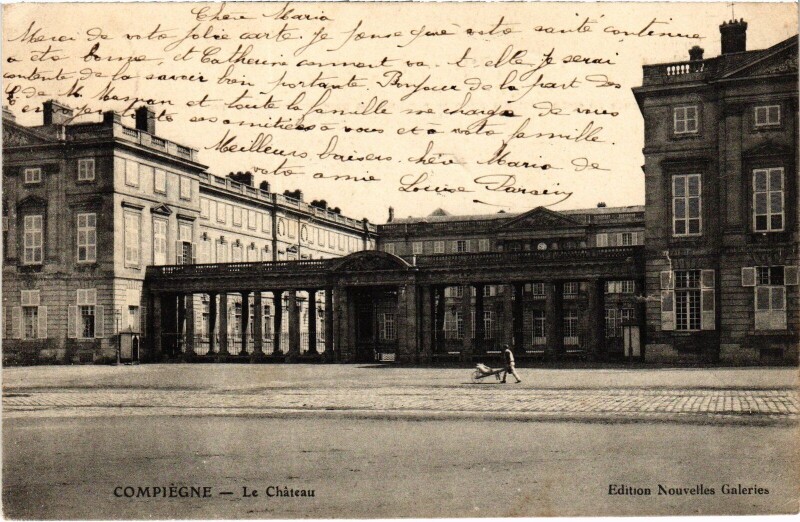 Chère Maria
Merci de votre jolie carte. Je pense que votre santé continue
a etre bonne, et Catherine comment va-t-elle, je serai
contente de la savoir bien portante. Bonjour de la part des
C de M. et toute la famille me charge de vous
ses amitiées à vous et à votre famille.
Meilleurs baisers. chère Maria de
votre amie Louise
COMPIÈGNE — Le Château
Edition Nouvelles Galeries